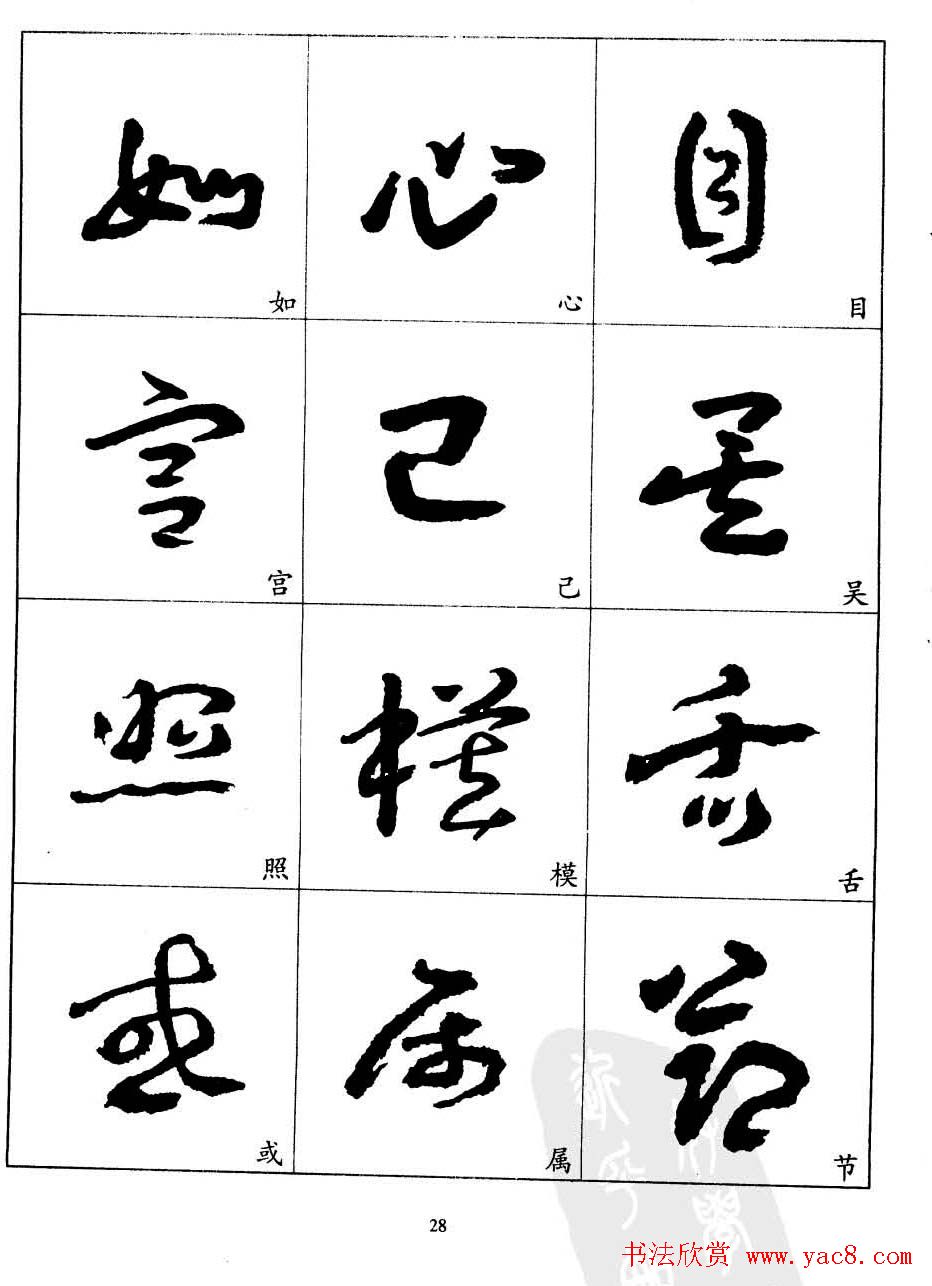 如 心 目
如 心 目
宫 己 吴
宫 己 吴
照 模 舌
照 模 舌
或 属 节
或 属 节
28
书法欣赏 www.yac8.com